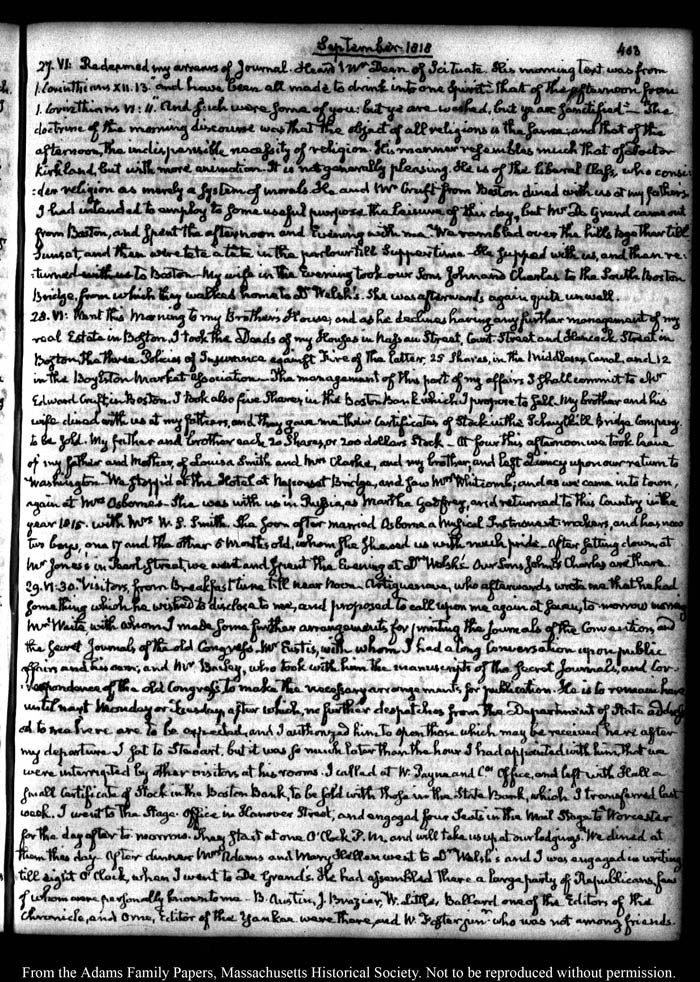 September 1818
403
27. VI: Redeemed my arrears of Journal. Heard Mr Deane of Scituate. His morning text was from
1. Corinthians XII. 13. and have been all made to drink into one Spirit: that of the afternoon from
1. Corinthians VI: 11. And such were some of you: but ye are washed, but ye are sanctified — The
doctrine of the morning discourse was that the object of all religions is the same; and that of the
afternoon, the indispensible necessity of religion. His manner resembles much that of Doctor
Kirkland, but with more animation. It is not generally pleasing. He is of the liberal Class, who consi-
:der religion as merely a System of morals. He and Mr Cruft from Boston dined with us at my fathers
I had intended to employ to some useful purpose the leisure of this day, but Mr De Grand came out
from Boston, and spent the afternoon and Evening with me. We rambled over the hills together till
Sunset, and then were tete a tete in the parlour till Supper time. He supped with us, and then re-
:turned with us to Boston. My wife in the Evening took our Sons John and Charles to the South Boston
Bridge, from which they walked home to Dr Welsh's. She was afterwards again quite unwell.
28. VI: Went this Morning to my Brothers House, and as he declines having any further management of my
real Estate in Boston, I took the Deeds of my Houses in Nassau Street, Court Street and Hancock Street in
Boston. The three Policies of Insurance against Fire of the latter, 25 Shares, in the Middlesex Canal, and 12
in the Boylston Market Association. The management of this part of my affairs I shall commit to Mr
Edward Cruft in Boston. I took also five Shares, in the Boston Bank which I propose to sell. My brother and his
wife dined with us at my fathers, and they gave me their Certificates of Stock in the Schuylkill Bridge Company.
to be sold. My father and brother each 20 Shares, or 200 dollars Stock — At four this afternoon we took leave
of my father and Mother, of Louisa Smith and Mrs Clarke, and my brother, and left Quincy upon our return to
Washington. We stopp'd at the Hotel at Neponset Bridge, and saw Mrs Whitcomb; and as we came into town,
again at Mrs Osborne's. She was with us in Russia, as Martha Godfrey, and returned to this Country in the
year 1815. with Mrs W. S. Smith. She soon after married Osborne a Musical Instrument maker, and has now
two boys, one 17 and the other 5 Months old, whom she shewed us with much pride. After sitting down, at
Mr Jones's in Pearl Street, we went and spent the Evening at Dr Welsh's. Our Sons John & Charles are there.
29. VI:30. Visitors, from Breakfast time till near Noon. Artiguenave, who afterwards wrote me that he had
something which he wished to disclose to me, and proposed to call upon me again at seven, to-morrow morning
Mr Waite with whom I made some further arrangements for printing the Journals of the Convention, and
the Secret Journals of the old Congress. Mr Eustis, with whom I had a long Conversation upon public
affairs and his own; and Mr Bailey, who took with him the manuscripts of the Secret Journals, and Cor-
:respondence of the old Congress to make the necessary arrangements for publication. He is to remain here
until next Monday or Tuesday, after which, no further despatches from the Department of State address-
ed to me here are to be expected, and I authorized him to open those which may be received here after
my departure. I sat to Stewart, but it was so much later than the hour I had appointed with him, that we
were interrupted by other visitors at his rooms. I called at W. Payne and Cos. Office, and left with Hall a
small Certificate of Stock in the Boston Bank, to be sold with those in the State Bank, which I transferred last
week. I went to the Stage-Office in Hanover Street, and engaged four Seats in the Mail Stage to Worcester
for the day after to-morrow. They start at one O'Clock P.M. and will take us up at our lodgings. We dined at
them this day. After dinner Mrs Adams and Mary Hellen went to Dr Welsh's and I was engaged in writing
till eight O'Clock, when I went to De Grand's. He had assembled there a large party of Republicans, few
of whom were personally known to me. B. Austin, J. Brazier, W. Little, Ballard one of the Editors of the
Chronicle, and Orne, Editor of the Yankee were there, and W. Foster junr. who was not among friends.
From the Adams Family Papers, Massachusetts Historical Society. Not to be reproduced without permission.